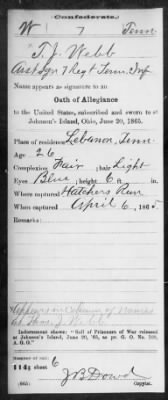 Confederate.
W 7 Tenn
T. J. Webb
Asst Sgn 7 Regt Tenn. Inf
Name appears as signature to an
Oath of Allegiance
to the United States, subscribed and sworn to at
Johnson's Island, Ohio, June 20, 1865.
Place of residence Lebanon, Tenn.
Age 26
Complexion Fair ; hair Light
Eyes Blue ; height 6 ft. in.
Where captured Hatchers Run
When captured April 6, 1865
Remarks:
Appears in Column of Names
as
Indorsement shows: "Roll of Prisoners of War released
at Johnson's Island, June 20, '65, as per G. O. No. 109,
A. G. O."
Number of roll:
6
J B Dowd